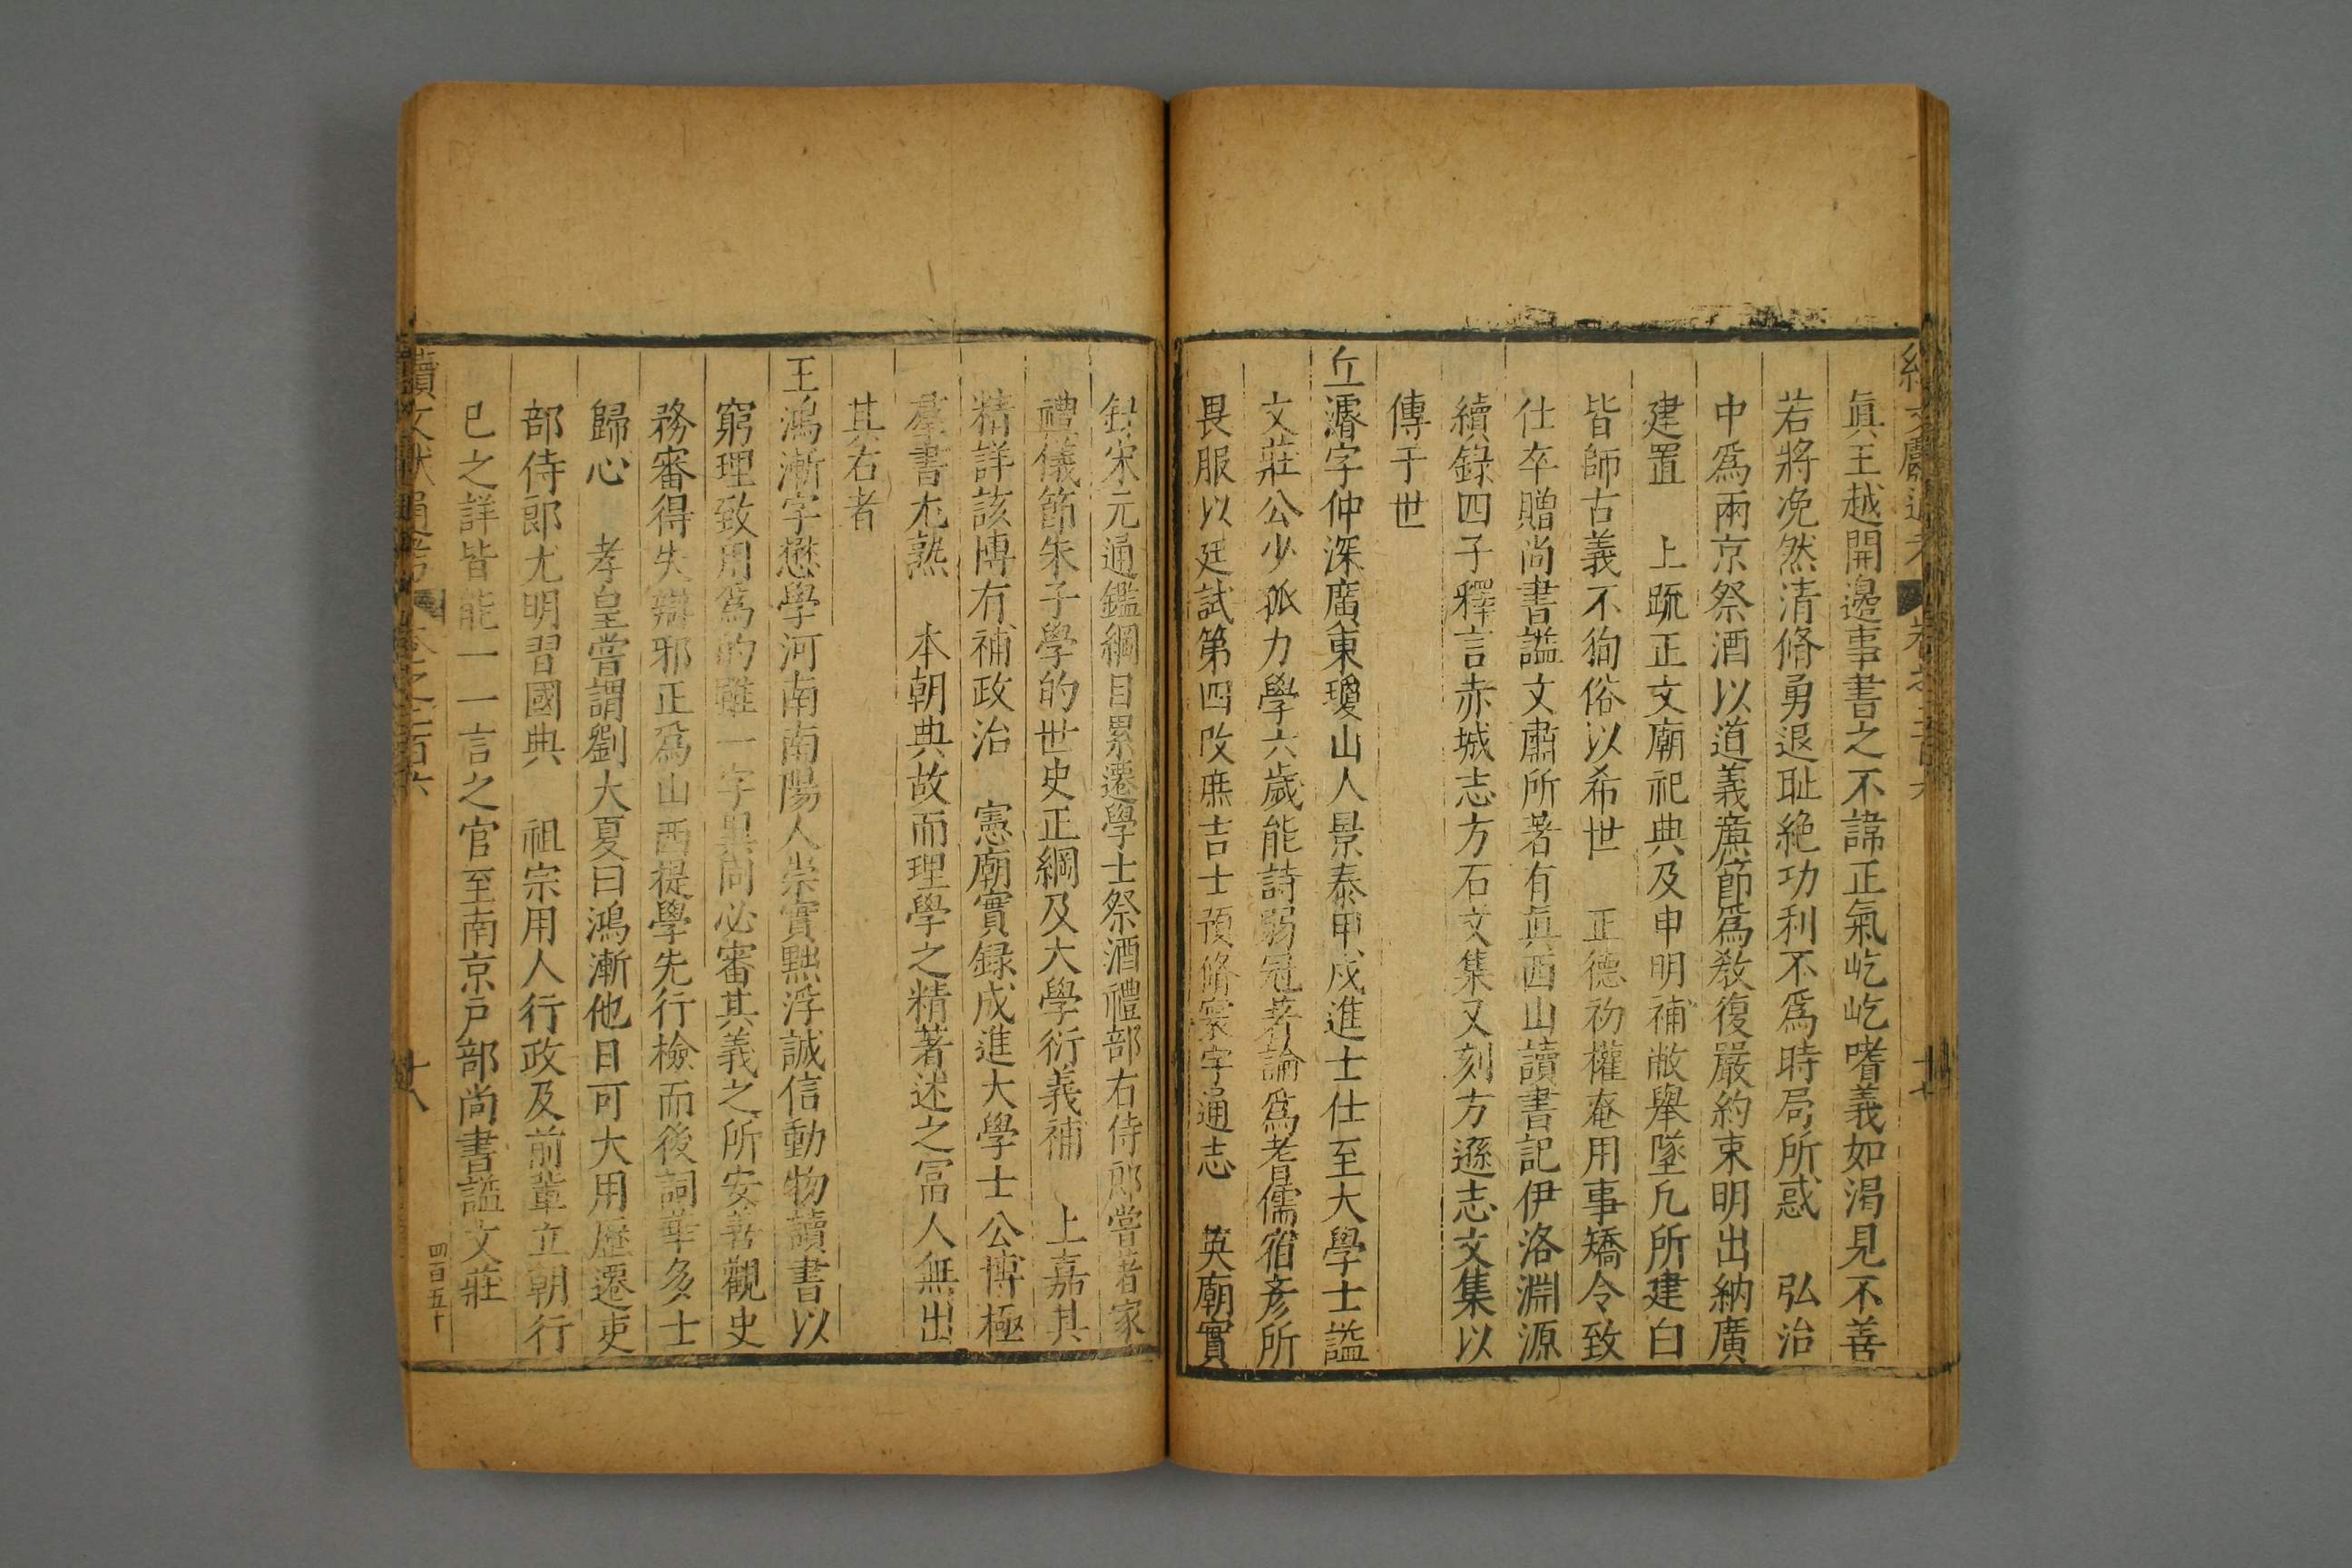 眞王越開邊事書之不諱正氣屹屹嗜義如渴見不善
若將凂然清脩勇退耻絶功利不爲時局所惑　弘治
中爲兩京祭酒以道義廉節爲敎復嚴約束明出納廣
建置　上疏正文廟祀典及申明補敝舉墜凢所建白
皆師古義不狥俗以希世　正德初權奄用事矯令致
仕卒贈尚書謚文肅所著有眞西山讀書記伊洛淵源
續錄四子釋言赤城志方石文集又刻方遜志文集以
傳于世
丘濬字仲深廣東瓊山人景泰甲戌進士仕至大學士謚
文莊公少孤力學六歲能詩弱冠著論爲耆儒宿彥所
畏服以廷試第四改庶吉士預脩寰宇通志　英廟實
錄宋元通鑑綱目累遷學士祭酒禮部右侍郎嘗著家
禮儀節朱子學的世史正綱及大學衍義補　上嘉其
精詳該博有補政治　憲廟實録成進大學士公博極
羣書尤熟　本朝典故而理學之精著述之冨人無出
其右者
王鴻漸字懋學河南南陽人崇實黜浮誠信動物讀書以
窮理致用爲的雖一字異同必審其義之所安善觀史
務審得失辯邪正爲山西提學先行檢而後詞華多士
歸心　孝皇嘗謂劉大夏曰鴻漸他日可大用歷遷吏
部侍郎尤明習國典　祖宗用人行政及前輩立朝行
已之詳皆能一一言之官至南京戸部尚書謚文莊
續文獻通考　卷之二百六　十八
四百五十